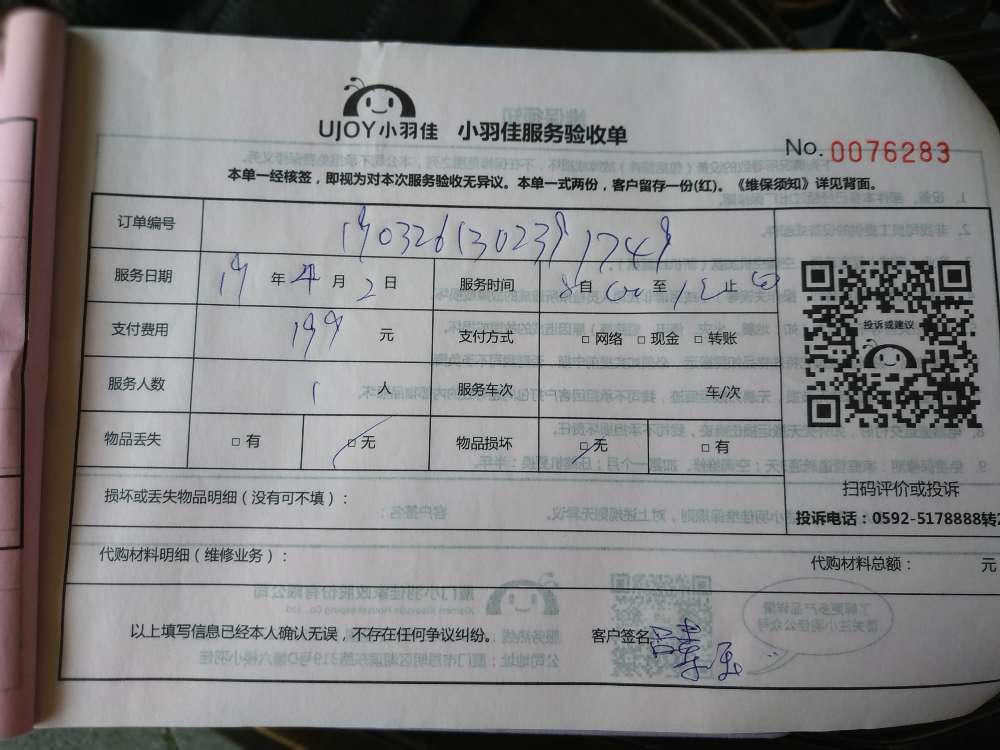 UJOY小羽佳 小羽佳服务验收单
No. 0076283
本单一经核签，即视为对本次服务验收无异议。本单一式两份，客户留存一份(红)。《维保须知》详见背面。
订单编号 1903261302391749
服务日期 19 年 4 月 2 日 服务时间 自 至 止
支付费用 199 元 支付方式 □ 网络 □ 现金 □ 转账
服务人数 1 人 服务车次 车/次
物品丢失 □ 有 □ 无 物品损坏 □ 无 □ 有
投诉或建议
扫码评价或投诉
投诉电话：0592-5178888转2
损坏或丢失物品明细（没有可不填）：
代购材料明细（维修业务）： 代购材料总额： 元
以上填写信息已经本人确认无误，不存在任何争议纠纷。 客户签名